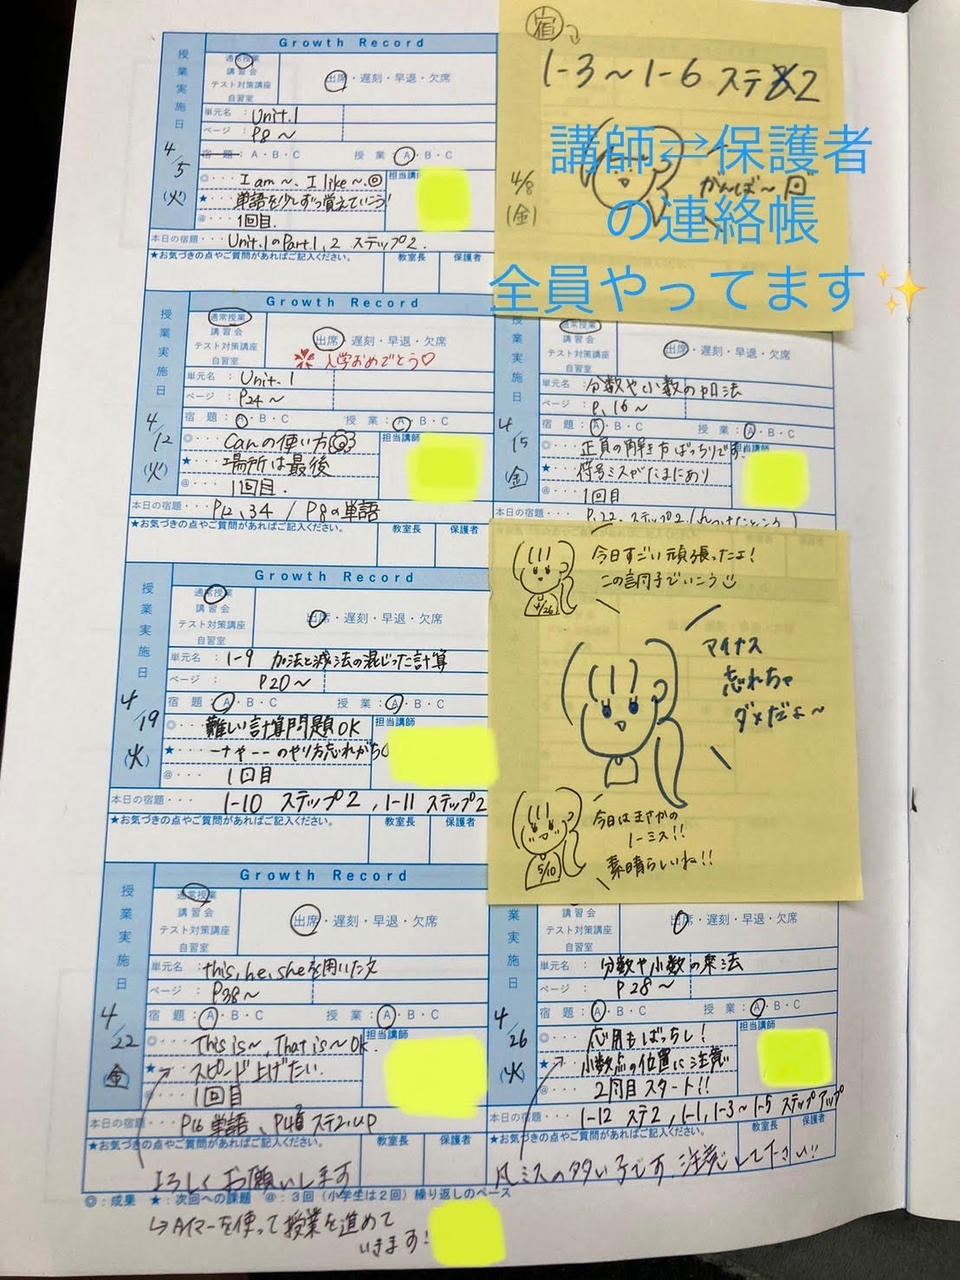 講師⇄保護者
の連絡帳
全員やってます✨
宿
1-3～1-6 ステ2
4/8
(金)
がんば～
Growth Record
授業実施日
4/5
(火)
通常授業
講習会
テスト対策講座
自習室
出席・遅刻・早退・欠席
単元名：Unit.1
ページ：P8～
宿題：A・B・C 授業：A・B・C
◎･･･ I am～、I like～.◎
担当講師
★･･･ 単語を少しずつ覚えていこう！
@･･･ 1回目.
本日の宿題･･･ Unit.1のPart.1,2 ステップ2.
★お気づきの点やご質問があればご記入ください。
教室長
保護者
Growth Record
授業実施日
4/12
(火)
通常授業
講習会
テスト対策講座
自習室
出席・遅刻・早退・欠席
入学おめでとう♡
単元名：Unit.1
ページ：P24～
宿題：A・B・C 授業：A・B・C
◎･･･ Canの使い方
担当講師
★･･･ 場所は最後
@･･･ 1回目.
本日の宿題･･･ P12、34 / P8の単語
★お気づきの点やご質問があればご記入ください。
教室長
保護者
授業実施日
4/15
(金)
通常授業
講習会
テスト対策講座
自習室
出席・遅刻・早退・欠席
単元名：分数や小数の加法
ページ：P.16～
宿題：A・B・C 授業：A・B・C
◎･･･ 正負の解き方ばっちりです.
担当講師
★･･･ 符号ミスがたまにあり
@･･･ 1回目
本日の宿題･･･ P.22、ステップ2
Growth Record
授業実施日
4/19
(火)
通常授業
講習会
テスト対策講座
自習室
出席・遅刻・早退・欠席
単元名：1-9 加法と減法の混じった計算
ページ：P20～
宿題：A・B・C 授業：A・B・C
◎･･･ 難しい計算問題OK
担当講師
★･･･ のやり方忘れがち
@･･･ 1回目
本日の宿題･･･ 1-10 ステップ2、1-11 ステップ2
★お気づきの点やご質問があればご記入ください。
教室長
保護者
今日すごい頑張ったよ！
この調子でいこう
4/26
マイナス
忘れちゃ
ダメだよ～
今日はまさかの
1ーミス!!
素晴らしいね!!
5/10
Growth Record
授業実施日
4/22
(金)
通常授業
講習会
テスト対策講座
自習室
出席・遅刻・早退・欠席
単元名：this, he, sheを用いた文
ページ：P38～
宿題：A・B・C 授業：A・B・C
◎･･･ This is～, That is～ OK.
担当講師
★･･･ スピード上げたい.
@･･･ 1回目
本日の宿題･･･ P16 単語、ステ2up
★お気づきの点やご質問があればご記入ください。
教室長
保護者
よろしくお願いします
授業実施日
4/26
(火)
講習会
テスト対策講座
自習室
出席・遅刻・早退・欠席
単元名：分数や小数の乗法
ページ：P28～
宿題：A・B・C 授業：A・B・C
◎･･･ 応用もばっちし！
担当講師
★･･･ 小数点の位置に注意
@･･･ 2回目スタート!!
本日の宿題･･･ 1-12 ステ2、1-1, 1-3～1-5 ステップアップ
★お気づきの点やご質問があればご記入ください。
教室長
保護者
凡ミスの多い子です。注意して下さい!!
◎：成果 ★：次回への課題 @：3回（小学生は2回）繰り返しのペース
↳タイマーを使って授業を進めて
いきます！